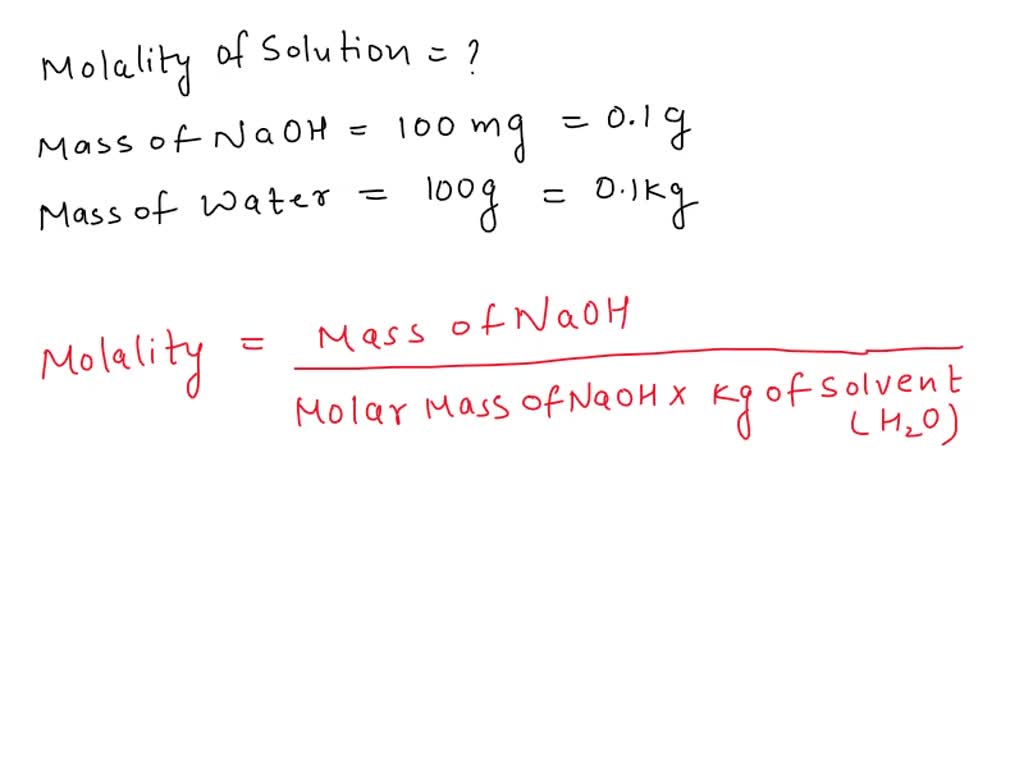 Molality of Solution = ?
Mass of NaOH = 100 mg = 0.1 g
Mass of Water = 100g = 0.1kg
Molality = Mass of NaOH
Molar Mass of NaOH x kg of Solvent
(H₂O)